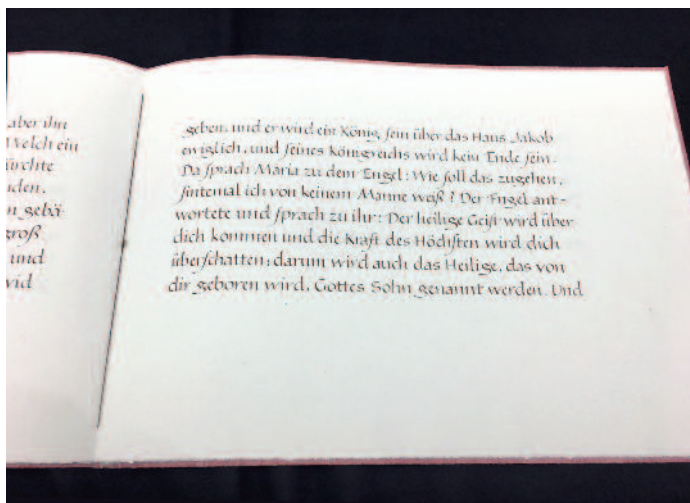 aber ihn
Welch ein
ürchte
nden.
n gebä-
groß
und
vid
geben, und er wird ein König sein über das Haus Jakob
ewiglich, und seines Königreichs wird kein Ende sein.
Da sprach Maria zu dem Engel: Wie soll das zugehen,
sintemal ich von keinem Manne weiß? Der Engel ant-
wortete und sprach zu ihr: Der heilige Geist wird über
dich kommen und die Kraft des Höchsten wird dich
überschatten; darum wird auch das Heilige, das von
dir geboren wird, Gottes Sohn genannt werden. Und